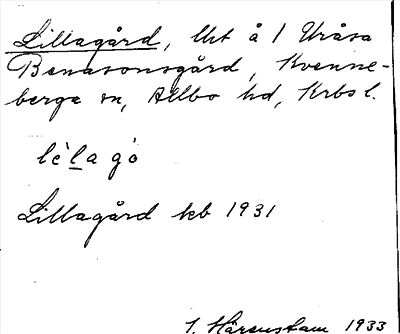 Lillagård, lht å 1 Uråsa
Benasonsgård, Kvenne-
berga sn, Allbo hd, Krbs l.
lèla gȯ
Lillagård kb 1931
1. Hårenstam 1933